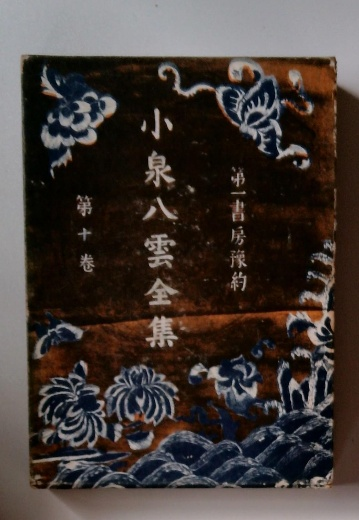 第一書房豫約
小泉八雲全集
第十卷